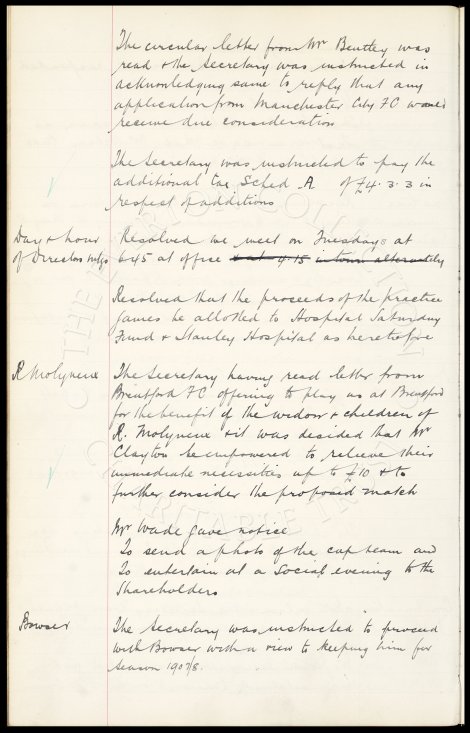 The circular letter from Mr Bentley was
read & the Secretary was instructed in
acknowledging same to reply that any
application from Manchester City FC would
receive due consideration
The Secretary was instructed to pay the
additional tax Sched. A of £4.3.3 in
respect of additions
Day & hour
of Directors mtgs
Resolved we meet on Tuesdays at
6.45 at office & at 4.15 in town alternately
Resolved that the proceeds of the practice
games be allotted to Hospital Saturday
Fund & Stanley Hospital as heretofore
R Molyneux
The Secretary having read letter from
Brentford FC offering to play us at Brentford
for the benefit of the widow & children of
R. Molyneux & it was decided that Mr
Clayton be empowered to relieve their
immediate necessities up to £10 & to
further consider the proposed match
Mr Wade gave notice
To send a photo of the cup team and
To entertain at a Social evening to the
Shareholders
Bowser
The Secretary was instructed to proceed
with Bowser with a view to keeping him for
Season 1907/8.